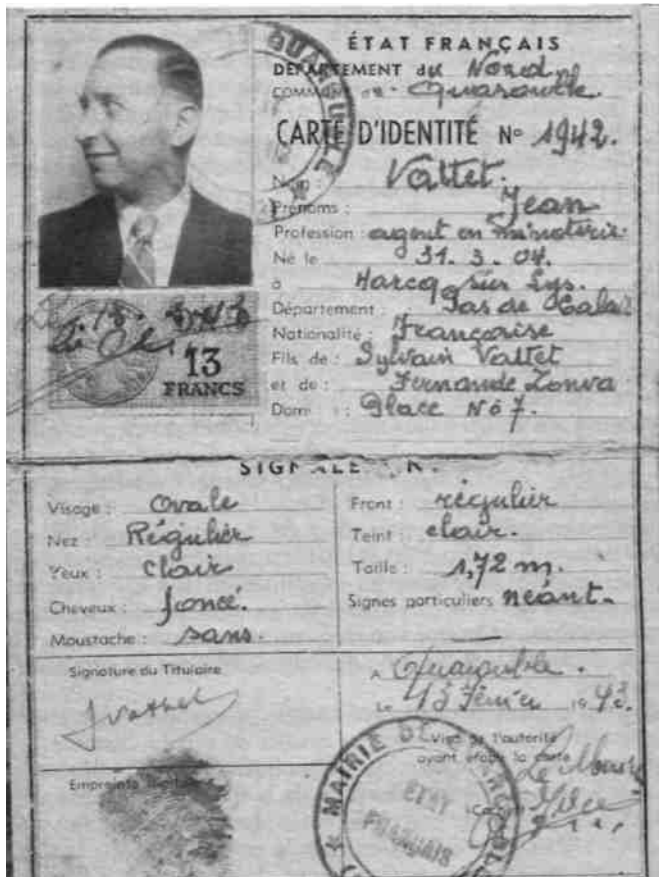 ÉTAT FRANÇAIS
DÉPARTEMENT du Nord
COMMUNE de Quarouble
CARTE D'IDENTITÉ N° 1942.
Nom : Vattet.
Prénoms : Jean
Profession : agent en minoterie
Né le 31. 3. 04.
à Harcq sur Lys.
Département : Pas de Calais
Nationalité : Françarise
Fils de : Sylvain Vattet
et de : Fernande Zonva
Place No 7.
13
FRANCS
Visage : Ovale
Nez : Régulier
Yeux : Clair
Cheveux : foncé.
Moustache : sans.
Front : régulier
Teint : clair.
Taille : 1,72 m.
Signes particuliers néant.
Signature du Titulaire
Empreinte
A Quarouble.
Le 13 1943.
Visa de l'autorité
ayant établi la carte
Le
MAIRIE DE
ETAT
FRANÇAIS